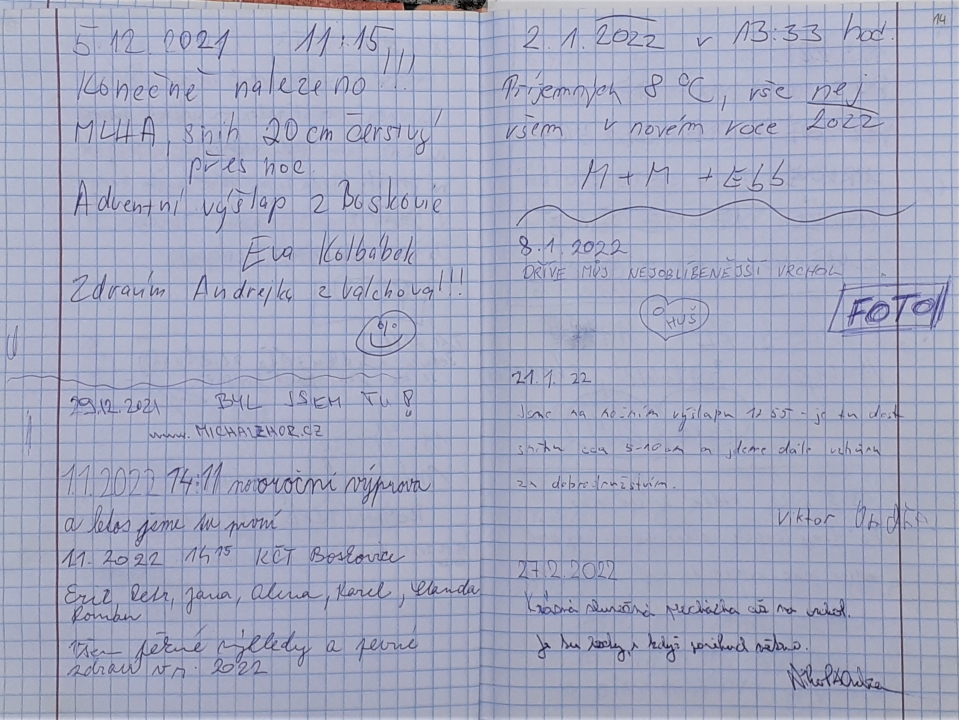 5.12.2021 11:15
Konečně nalezeno!!!
MLHA, sníh 20cm čerstvý
přes noc.
Adventní výšlap z Boskovic
Eva Kolbábek
Zdravím Andrejku z Valchova!!!
29.12.2021 BYL JSEM TU!
www.MICHALZHOR.CZ
1.1.2022 14:11 novoroční výprava
a letos jsme tu první
1.1. 2022 14 15 KČT Boskovice
Petr, Jana, Alena, Karel, Vlanda
Roman
Všem pěkné výhledy a pevné
zdraví v r. 2022
14
2.1.2022 v 13:33 hod.
Příjemných 8 °C, vše nej
všem v novém roce 2022
M + M +
8.1.2022
DŘÍVE MŮJ NEJOBLÍBENĚJŠÍ VRCHOL
HUŠ
FOTO
21.1.22
Jsme na nočním výšlapu - je tu dost
sněhu cca 5-10cm a jdeme dále vchůru
za dobrodružstvím.
Viktor
27.2.2022
Krásná slunečná procházka až na vrchol.
Je tu hezky, i když